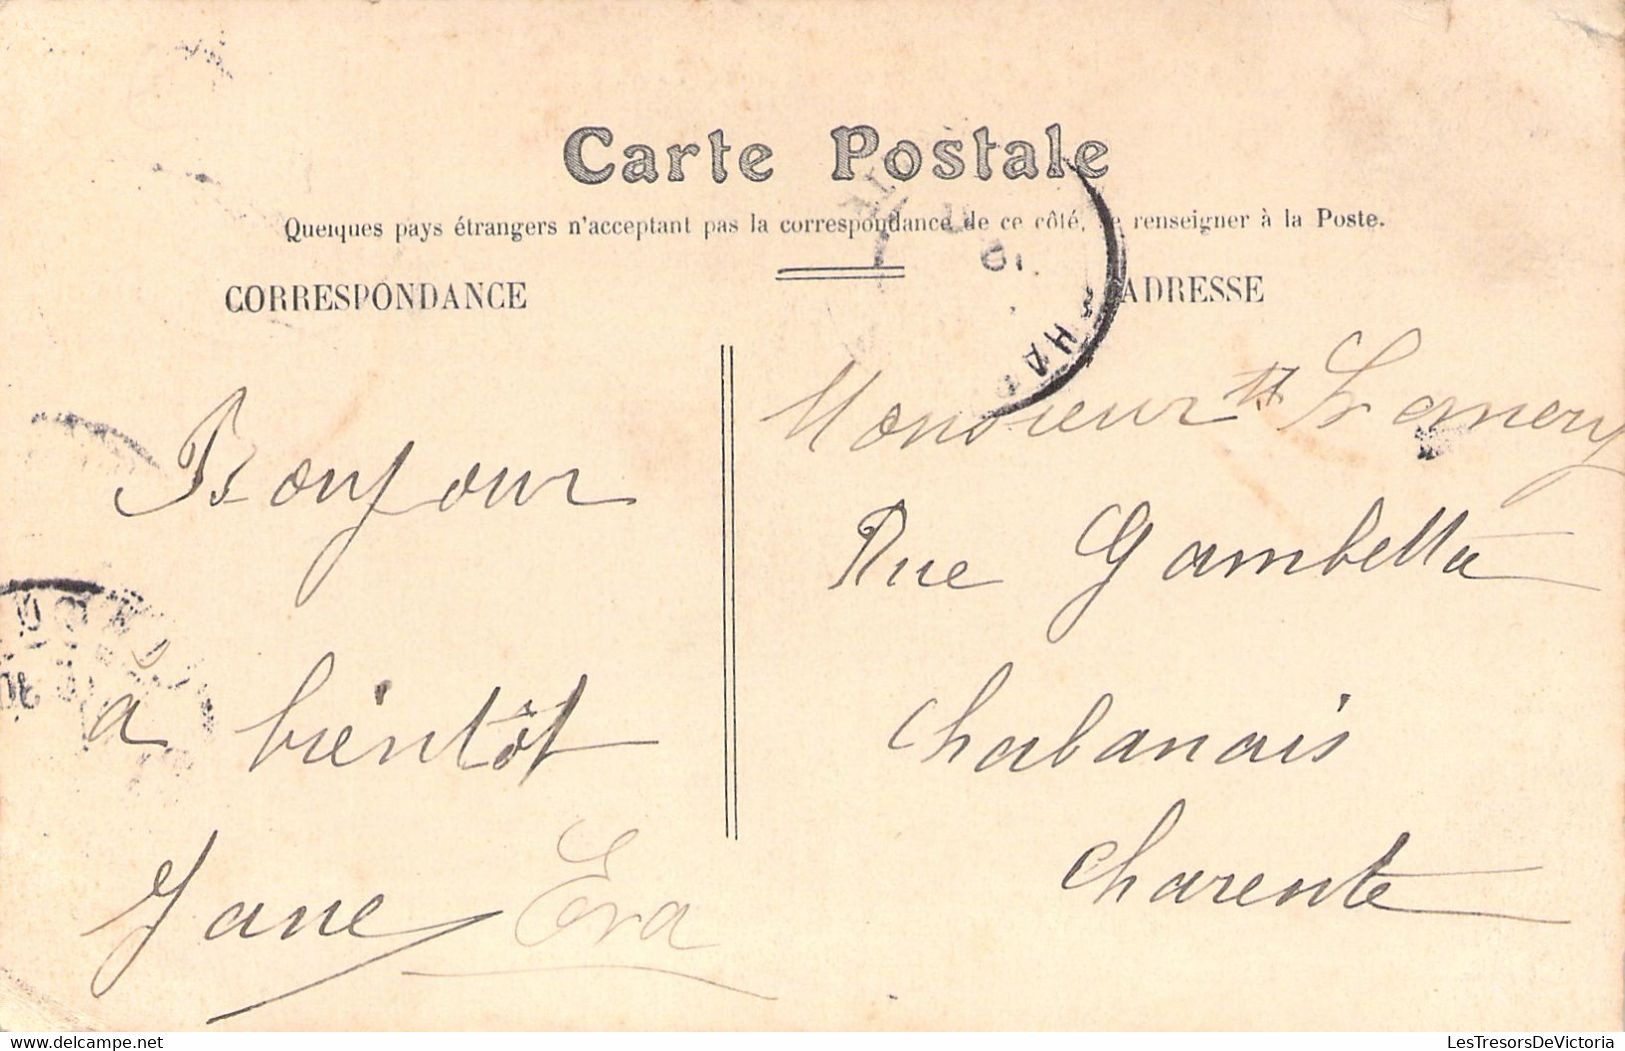 Carte Postale
Quelques pays étrangers n'acceptant pas la correspondance de ce côté, se renseigner à la Poste.
CORRESPONDANCE
Bonjour
a bientôt
Jane Eva
ADRESSE
Monsieur
Rue Gambetta
Chabanais
Charente
LesTresorsDeVictoria